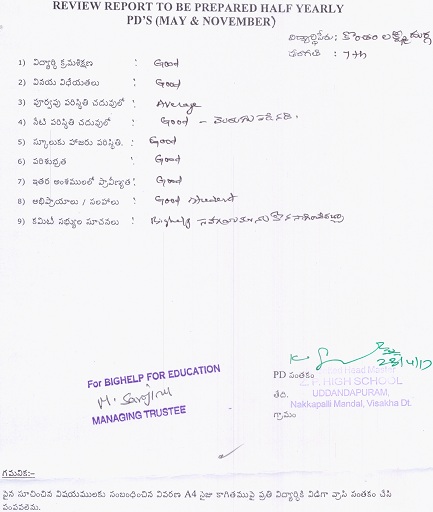 REVIEW REPORT TO BE PREPARED HALF YEARLY
PD'S (MAY & NOVEMBER)
విద్యార్థిపేరు: కొంతం లక్ష్మీ దుర్గ
తరగతి : 7th
1) విద్యార్థి క్రమశిక్షణ : Good
2) వినయ విధేయతలు : Good
3) పూర్వపు పరిస్థితి చదువులో : Average
4) నేటి పరిస్థితి చదువులో : Good -
5) స్కూలుకు హాజరు పరిస్థితి. : Good
6) పరిశుభ్రత : Good
7) ఇతర అంశములలో ప్రావీణ్యత : Good
8) అభిప్రాయాలు / సలహాలు : Good student
9) కమిటి సభ్యుల సూచనలు : Bighelp
28/4/17
For BIGHELP FOR EDUCATION
M. Sarojini
MANAGING TRUSTEE
PD సంతకం
Head Master
Z.P. HIGH SCHOOL
తేది. UDDANDAPURAM,
Nakkapalli Mandal, Visakha Dt.
గ్రామం
గమనిక:-
పైన సూచించిన విషయములకు సంబంధించిన వివరణ A4 సైజు కాగితముపై ప్రతి విద్యార్థికి విడిగా వ్రాసి సంతకం చేసి
పంపవలెను.